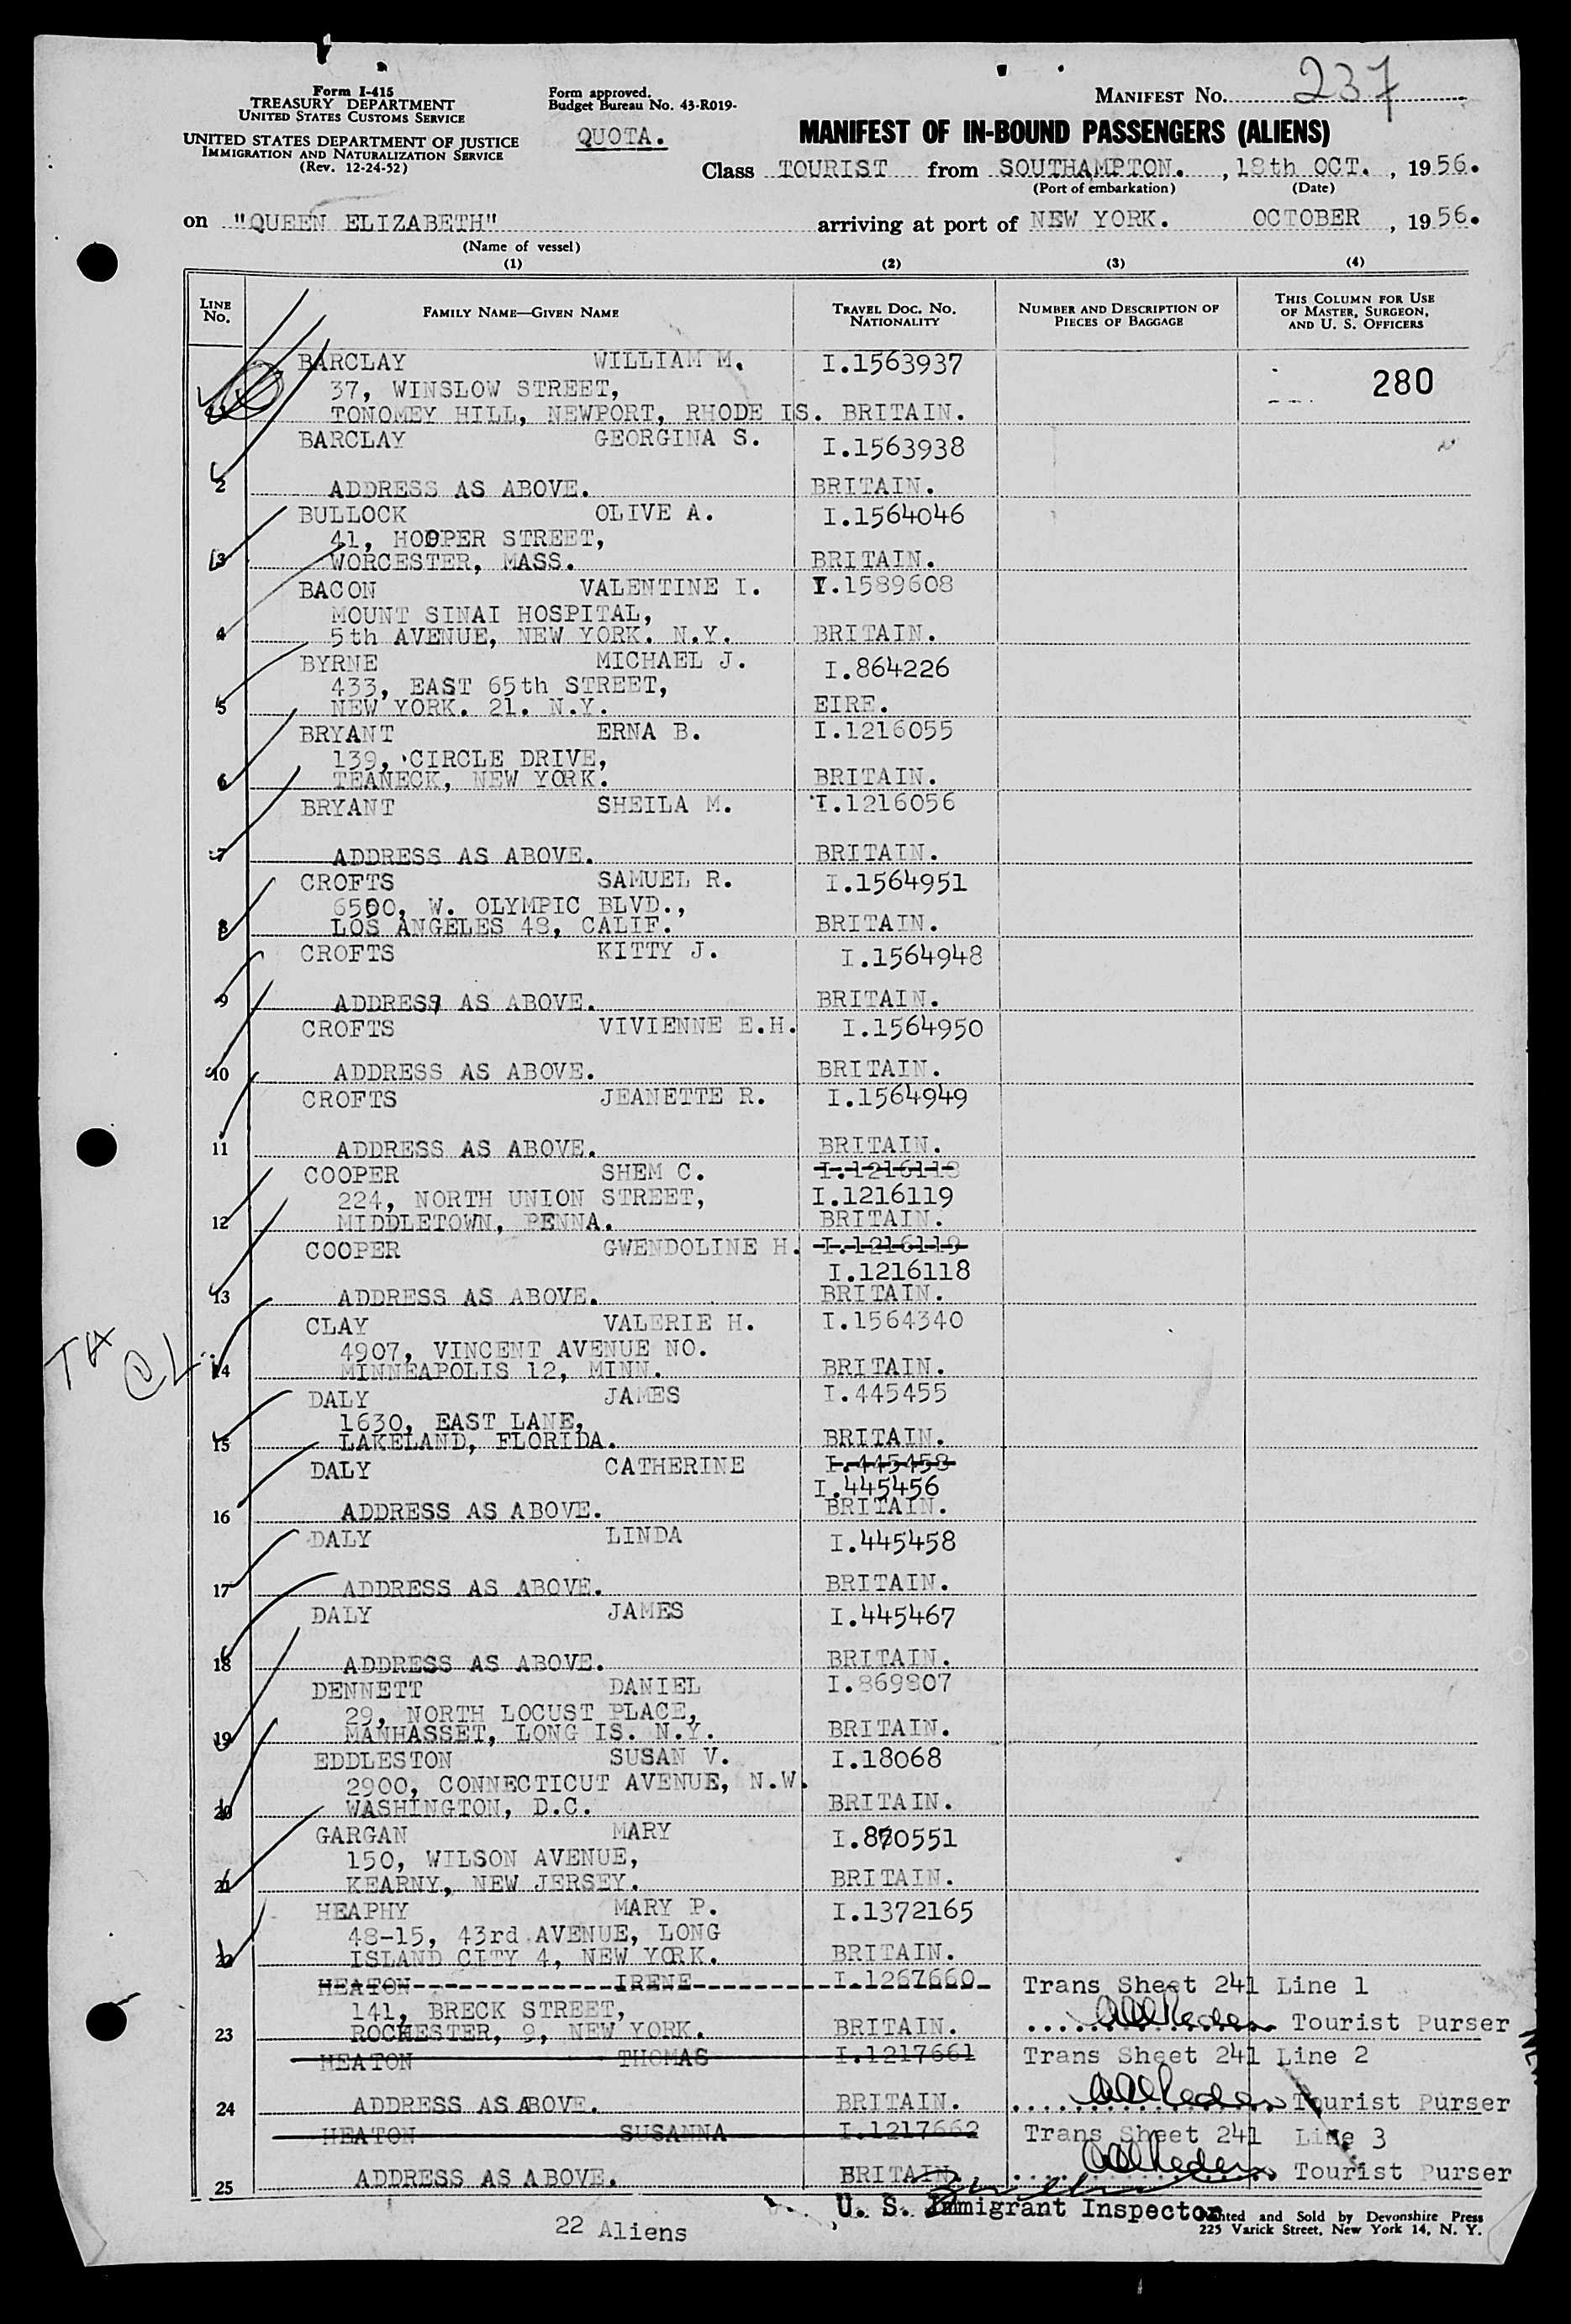 Form I-415
TREASURY DEPARTMENT
UNITED STATES CUSTOMS SERVICE
UNITED STATES DEPARTMENT OF JUSTICE
IMMIGRATION AND NATURALIZATION SERVICE
(Rev. 12-24-52)
Form approved.
Budget Bureau No. 43-R019-
QUOTA.
MANIFEST NO. 237
MANIFEST OF IN-BOUND PASSENGERS (ALIENS)
Class TOURIST from SOUTHAMPTON. , 18th OCT. , 1956.
(Port of embarkation) (Date)
on "QUEEN ELIZABETH" arriving at port of NEW YORK. OCTOBER , 1956.
(Name of vessel)
(1) (2) (3) (4)
LINE NO. FAMILY NAME—GIVEN NAME TRAVEL DOC. NO. NATIONALITY NUMBER AND DESCRIPTION OF PIECES OF BAGGAGE THIS COLUMN FOR USE OF MASTER, SURGEON, AND U. S. OFFICERS
BARCLAY WILLIAM M. I.1563937
37, WINSLOW STREET, 280
1 TONOMEY HILL, NEWPORT, RHODE IS. BRITAIN.
BARCLAY GEORGINA S. I.1563938
2 ADDRESS AS ABOVE. BRITAIN.
BULLOCK OLIVE A. I.1564046
41, HOOPER STREET,
3 WORCESTER, MASS. BRITAIN.
BACON VALENTINE I. I.1589608
MOUNT SINAI HOSPITAL,
4 5th AVENUE, NEW YORK. N.Y. BRITAIN.
BYRNE MICHAEL J. I.864226
433, EAST 65th STREET,
5 NEW YORK. 21. N.Y. EIRE.
BRYANT ERNA B. I.1216055
139, CIRCLE DRIVE,
6 TEANECK, NEW YORK. BRITAIN.
BRYANT SHEILA M. I.1216056
7 ADDRESS AS ABOVE. BRITAIN.
CROFTS SAMUEL R. I.1564951
6500, W. OLYMPIC BLVD.,
8 LOS ANGELES 48, CALIF. BRITAIN.
CROFTS KITTY J. I.1564948
9 ADDRESS AS ABOVE. BRITAIN.
CROFTS VIVIENNE E.H. I.1564950
10 ADDRESS AS ABOVE. BRITAIN.
CROFTS JEANETTE R. I.1564949
11 ADDRESS AS ABOVE. BRITAIN.
COOPER SHEM C. I.1216118
224, NORTH UNION STREET, I.1216119
12 MIDDLETOWN, PENNA. BRITAIN.
COOPER GWENDOLINE H. I.1216119
I.1216118
13 ADDRESS AS ABOVE. BRITAIN.
CLAY VALERIE H. I.1564340
4907, VINCENT AVENUE NO.
14 MINNEAPOLIS 12, MINN. BRITAIN.
DALY JAMES I.445455
1630, EAST LANE,
15 LAKELAND, FLORIDA. BRITAIN.
DALY CATHERINE I.445458
I.445456
16 ADDRESS AS ABOVE. BRITAIN.
DALY LINDA I.445458
17 ADDRESS AS ABOVE. BRITAIN.
DALY JAMES I.445467
18 ADDRESS AS ABOVE. BRITAIN.
DENNETT DANIEL I.869807
29, NORTH LOCUST PLACE,
19 MANHASSET, LONG IS. N.Y. BRITAIN.
EDDLESTON SUSAN V. I.18068
2900, CONNECTICUT AVENUE, N.W.
20 WASHINGTON, D.C. BRITAIN.
GARGAN MARY I.870551
150, WILSON AVENUE,
21 KEARNY, NEW JERSEY. BRITAIN.
HEAPHY MARY P. I.1372165
48-15, 43rd AVENUE, LONG
22 ISLAND CITY 4, NEW YORK. BRITAIN.
HEATON IRENE I.1267660 Trans Sheet 241 Line 1
141, BRECK STREET,
23 ROCHESTER, 9, NEW YORK. BRITAIN. Tourist Purser
HEATON THOMAS I.1217661 Trans Sheet 241 Line 2
24 ADDRESS AS ABOVE. BRITAIN. Tourist Purser
HEATON SUSANNA I.1217662 Trans Sheet 241 Line 3
25 ADDRESS AS ABOVE. BRITAIN. Tourist Purser
U. S. Immigrant Inspector
22 Aliens
Printed and Sold by Devonshire Press
225 Varick Street, New York 14, N. Y.